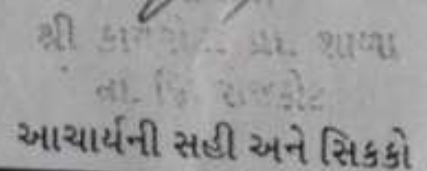 શ્રી પ્રા. શાળા
તા. જિ. રાજકોટ
આચાર્યની સહી અને સિકકો